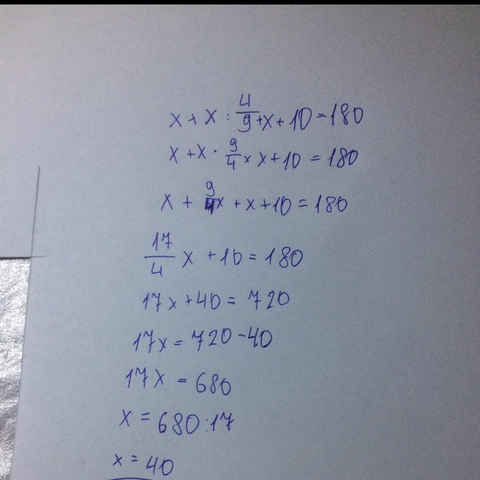 x + x : 4/9 + x + 10 = 180
x + x · 9/4 + x + 10 = 180
x + 9/4 x + x + 10 = 180
17/4 x + 10 = 180
17x + 40 = 720
17x = 720 - 40
17x = 680
x = 680 : 17
x = 40